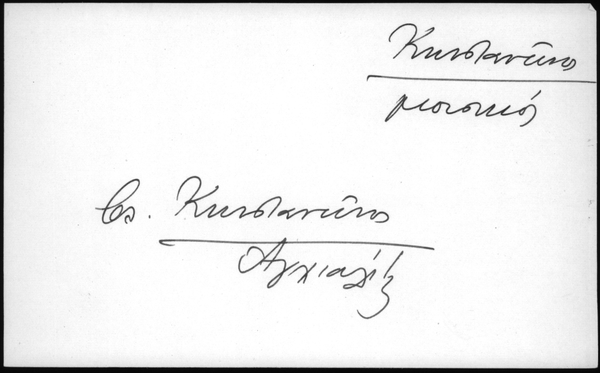 Κωνσταντῖνος
μουσικός
βλ. Κωνσταντῖνος
Ἀγχιαλίτης